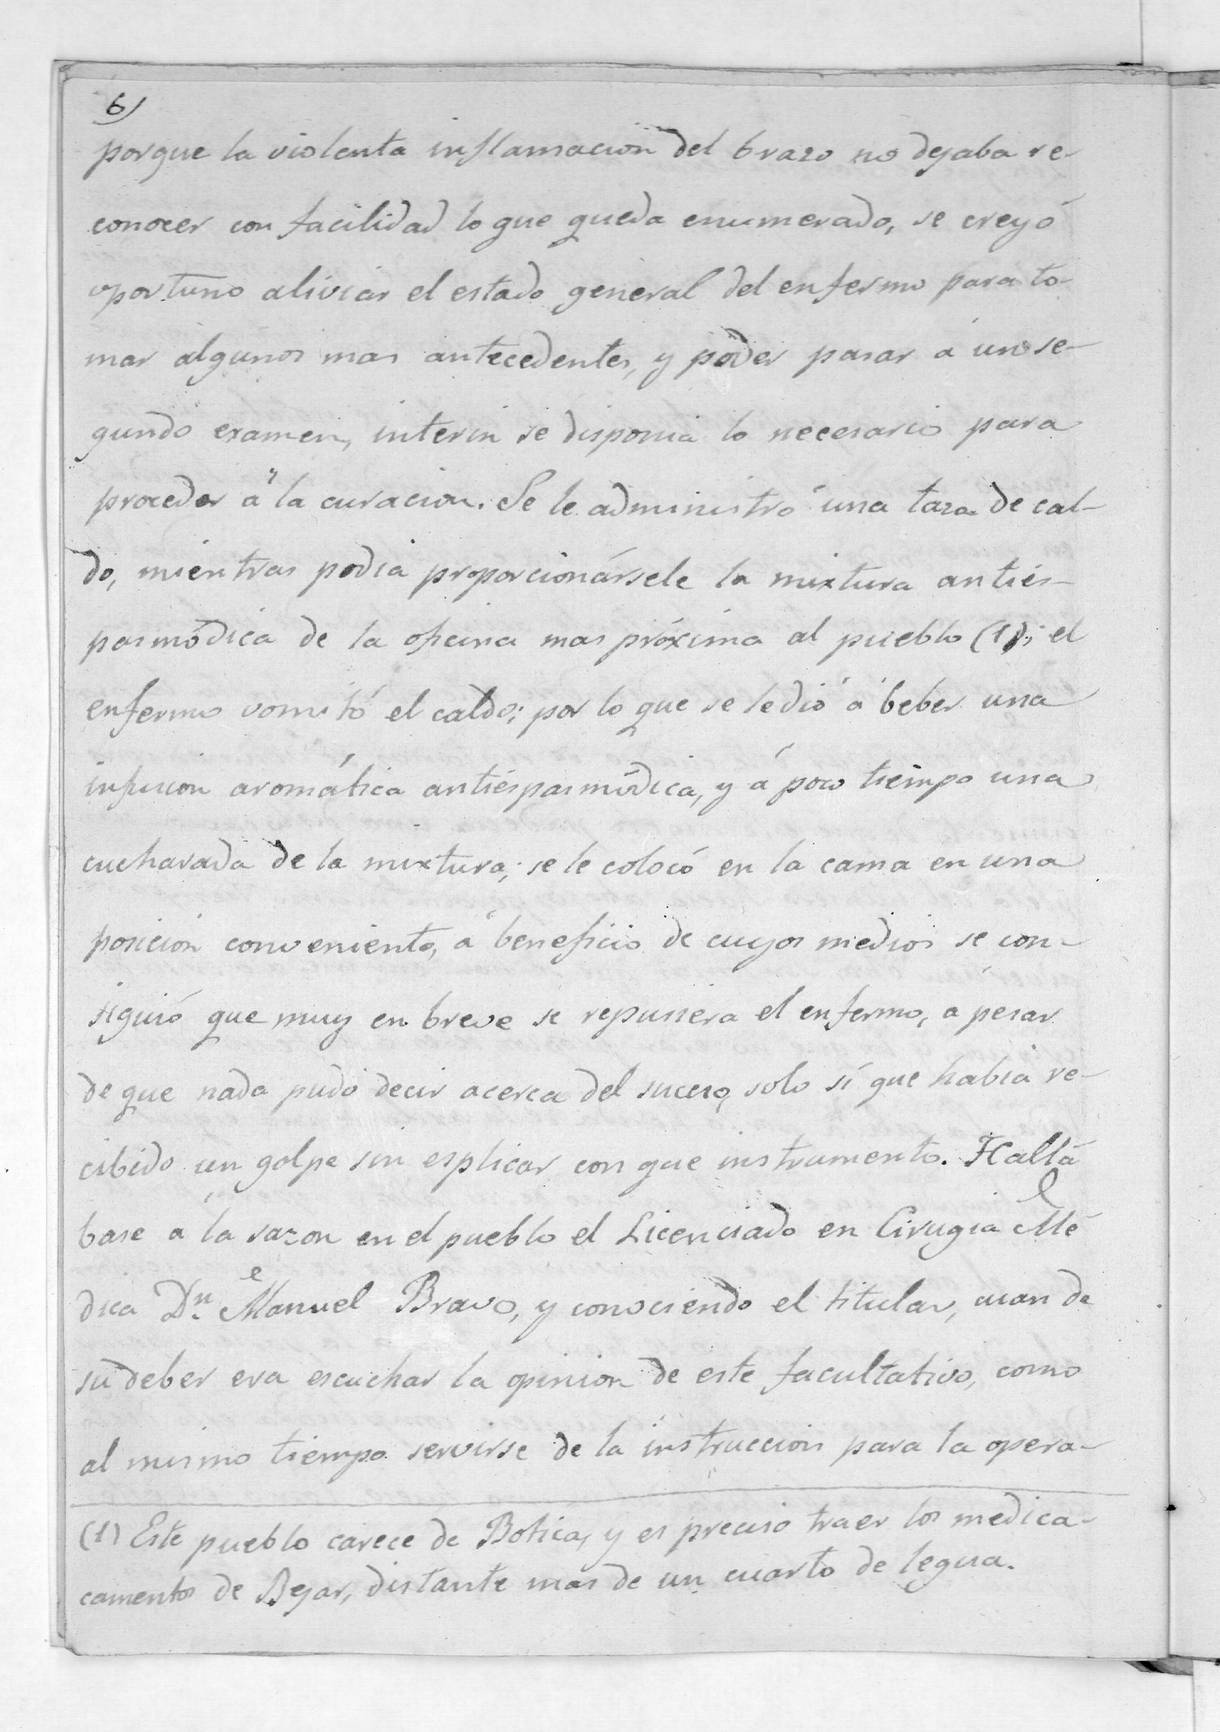 6)
porque la violenta inflamacion del brazo no dejaba re-
conocer con facilidad lo que queda enumerado, se creyó
oportuno aliviar el estado general del enfermo para to-
mar algunos mas antecedentes, y poder pasar á un se-
gundo examen, interin se disponia lo necesario para
proceder á la curacion. Se le administró una taza de cal-
do, mientras podia proporcionársele la mixtura anties-
pasmódica de la oficina mas próxima al pueblo (1); el
enfermo vomitó el caldo; por lo que se le dió á beber una
infusion aromática antiespasmódica, y á poco tiempo una
cucharada de la mixtura; se le colocó en la cama en una
posicion conveniente, á beneficio de cuyos medios se con-
siguió que muy en breve se repusiera el enfermo, á pesar
de que nada pudo decir acerca del suceso, solo sí que habia re-
cibido un golpe sin esplicar con que instrumento. Hallá
base a la razon en el pueblo el Licenciado en Cirugia Mé
dica Dn. Manuel Bravo, y conociendo el titular, cuan de
su deber era escuchar la opinion de este facultativo, como
al mismo tiempo servirse de la instruccion para la opera-
(1) Este pueblo carece de Botica, y es preciso traer los medica-
camentos de Bejar, distante mas de un cuarto de legua.